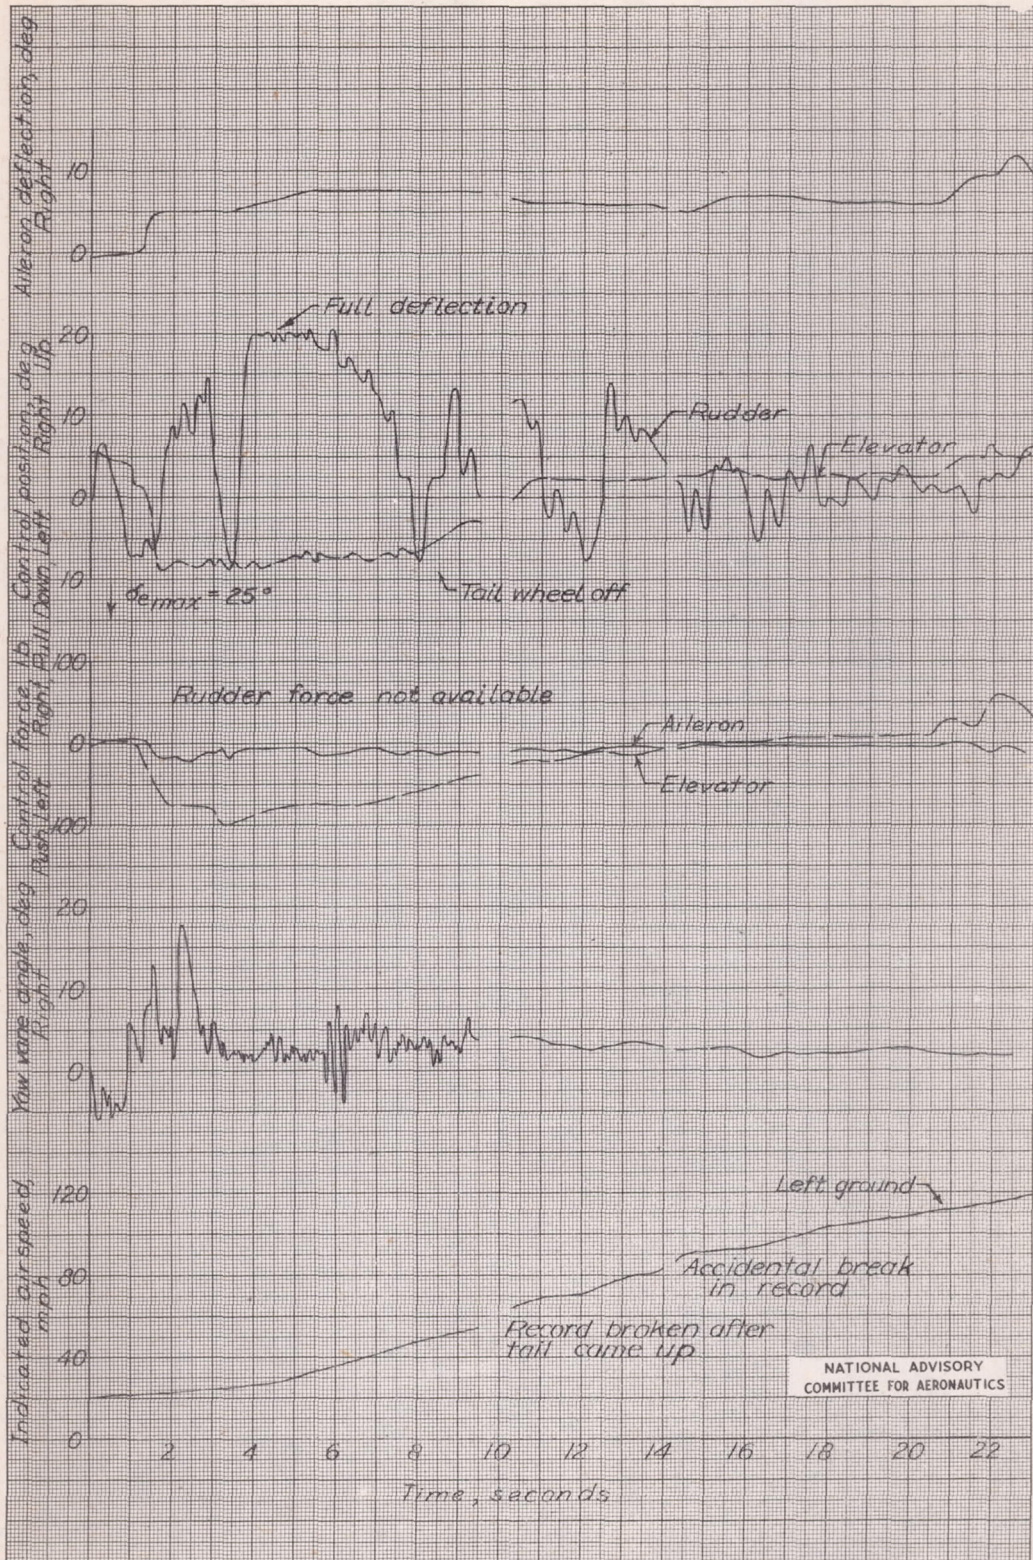 Aileron deflection, deg
Right
10
0
Control position, deg
Down Left Right Up
20
10
0
10
Full deflection
Rudder
Elevator
Tail wheel off
δemax = 25°
Control force, lb
Push Left Right Pull
100
0
100
Rudder force not available
Aileron
Elevator
Yaw vane angle, deg
Right
20
10
0
Indicated airspeed,
mph
120
80
40
0
Left ground
Accidental break
in record
Record broken after
tail came up
NATIONAL ADVISORY
COMMITTEE FOR AERONAUTICS
2 4 6 8 10 12 14 16 18 20 22
Time, seconds